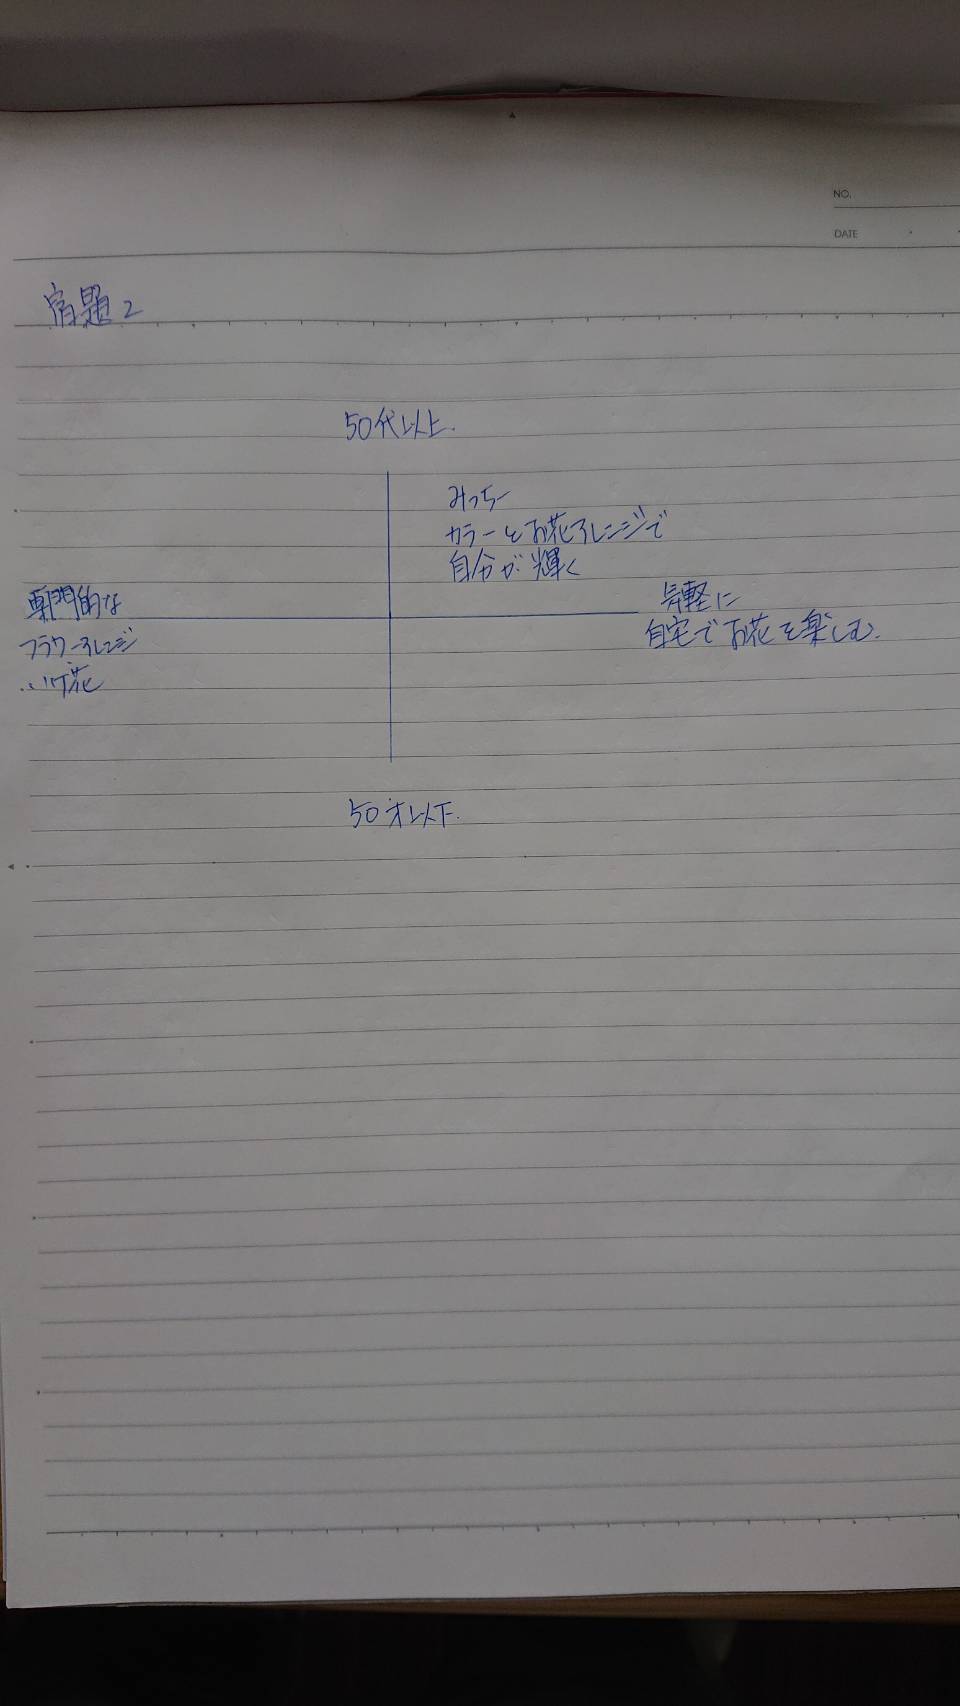 NO.
DATE
宿題2
50代以上.
みっちー
カラーとお花アレンジで
自分が輝く
専門的な
フラワーアレンジ
いけ花
気軽に
自宅でお花を楽しむ.
50才以下.